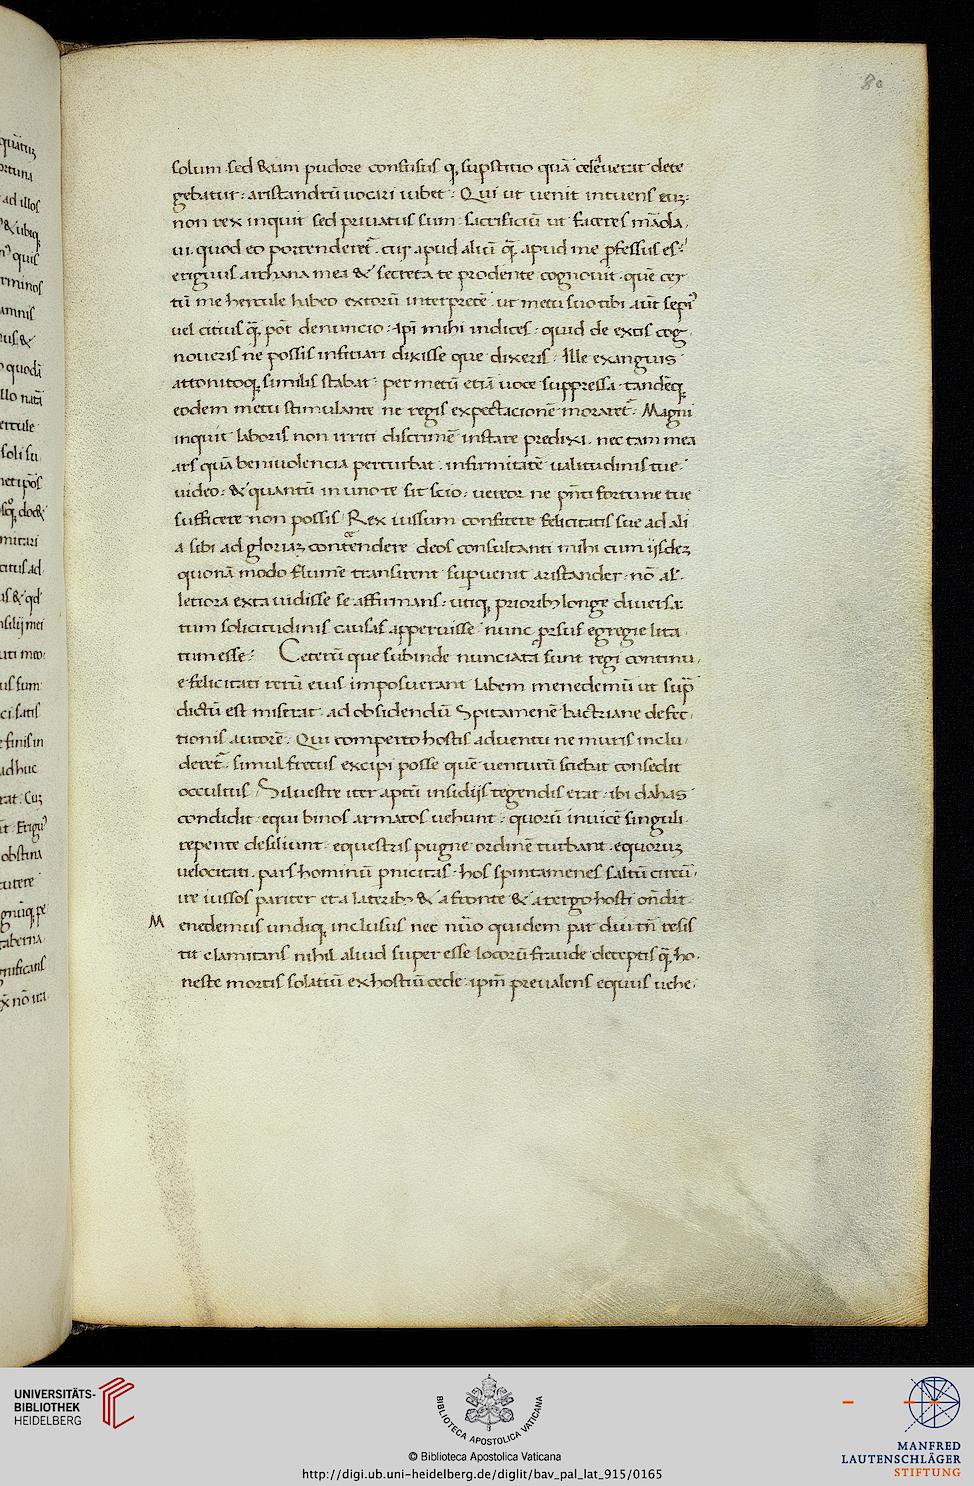 80
solum sed &iam pudore confusus q, supstitio quā celeͥuerat dete
gebatur: aristandrū uocari iubet: Qui ut uenit intuens euꝫ:
non rex inquit sed priuatus sum. sacrificiū ut faceres mādа
ui. quod eo portenderet᷑. cur apud aliū q̄ apud me ꝓfessus es:
erigius archana mea & secreta te prodente cognouit. quē cer
tū me hercule habeo extorū interpretē. ut metu suo tibi aūt sepiꝰ
uel citius q̄ pōt denuncio: ip̄i mihi indices: quid de extis cog
noueris ne possis infitiari dixisse que dixeris: Ille exanguis
attonitoq, similis stabat: per metū etiā uoce suppressa: tandēq,
eodem metu stimulante ne regis expectacionē moraret᷑: Magni
inquit laboris non irriti discrimē instare predixi. nec tam mea
ars quā beniuolencia perturbat. infirmitatē ualitudinis tue
uideo: & quantū in uno te sit scio: uereor ne p̄nti fortune tue
sufficere non possis: Rex iussum confitere felicitatis sue ad ali
a sibi ad gloriaꝫ contendere deos consultanti mihi cum iisdeꝫ
quonā modo flumē transirent supuenit aristander: nō al
letiora exta uidisse se affirmans: utiq, prioribꝫ longe diuersa:
tum solicitudinis causas apperuisse: nunc ꝓrsus egregie lita
tum esse: Ceterū que subinde nunciata sunt regi continu
e felicitati rerū eius imposuerant labem menedemū ut sup̄
dictū est miserat: ad obsidendū Spitamenē bactriane defec
tionis autorē: Qui comperto hostis aduentu ne muris inclu
deret᷑. simul fretus excipi posse quē uenturū sciebat consedit
occultus: Siluestre iter aptū insidijs tegendis erat: ibi dahas
condidit: equi binos armatos uehunt: quorū inuicē singuli
repente desiliunt: equestris pugne ordinē turbant. equoruꝫ
uelocitati. pars hominū pnicitas: hos spintamenes saltū circū
ire iussos pariter et a lateribꝫ & a fronte & a tergo hosti ōndit
M enedemus undiq, inclusus nec nūo quidem par diu tn̄ resis
tit clamitans nihil aliud super esse locorū fraude deceptis q̄ ho
neste mortis solatiū ex hostiū cede: ipm̄ preualens equus uehe
UNIVERSITÄTS-
BIBLIOTHEK
HEIDELBERG
BIBLIOTECA APOSTOLICA VATICANA
© Biblioteca Apostolica Vaticana
http://digi.ub.uni-heidelberg.de/diglit/bav_pal_lat_915/0165
MANFRED
LAUTENSCHLÄGER
STIFTUNG